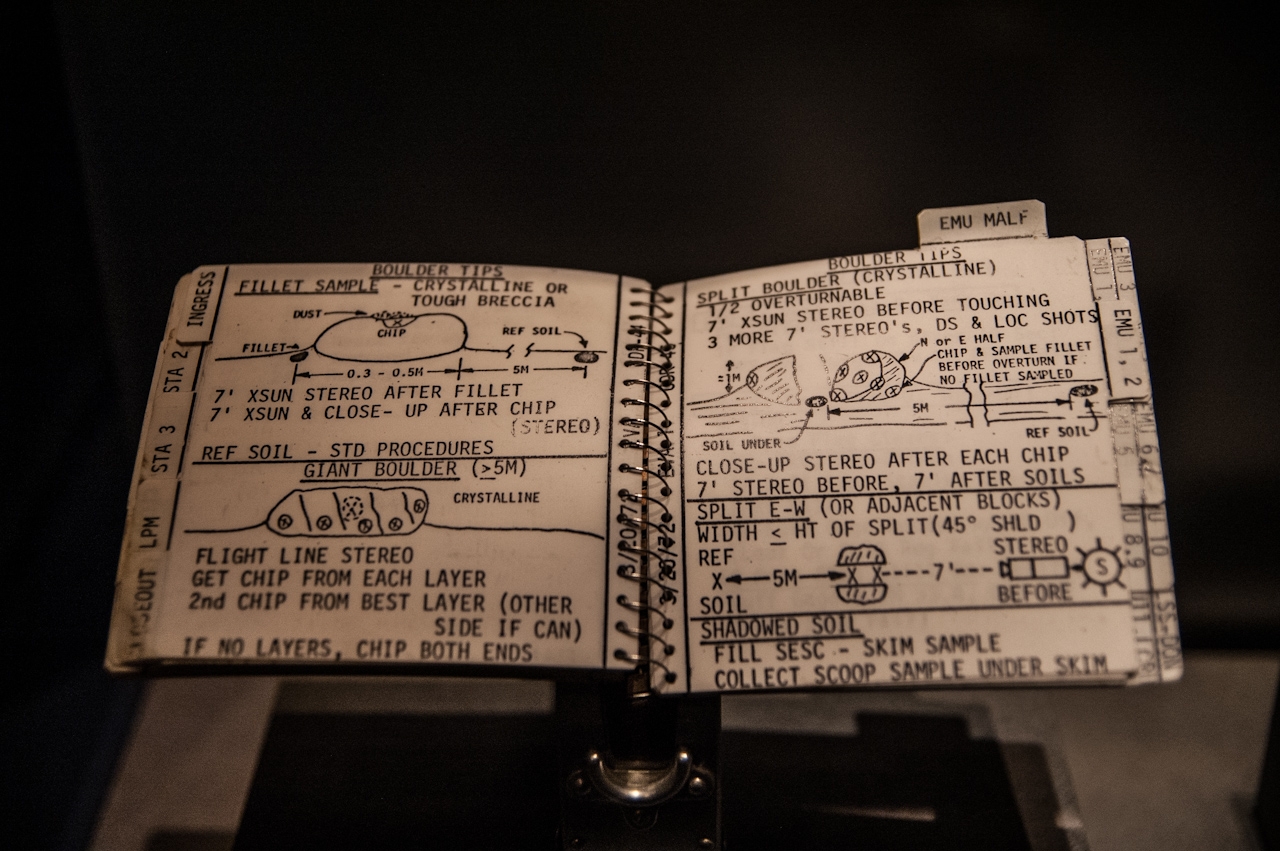 INGRESS
STA 2
STA 3
LPM
BOULDER TIPS
FILLET SAMPLE - CRYSTALLINE OR
TOUGH BRECCIA
DUST
CHIP
REF SOIL
FILLET
0.3 - 0.5M
5M
7' XSUN STEREO AFTER FILLET
7' XSUN & CLOSE- UP AFTER CHIP
(STEREO)
REF SOIL - STD PROCEDURES
GIANT BOULDER (≥5M)
CRYSTALLINE
FLIGHT LINE STEREO
GET CHIP FROM EACH LAYER
2nd CHIP FROM BEST LAYER (OTHER
SIDE IF CAN)
IF NO LAYERS, CHIP BOTH ENDS
EMU MALF
BOULDER TIPS
SPLIT BOULDER (CRYSTALLINE)
1/2 OVERTURNABLE
7' XSUN STEREO BEFORE TOUCHING
3 MORE 7' STEREO's, DS & LOC SHOTS
N or E HALF
CHIP & SAMPLE FILLET
BEFORE OVERTURN IF
NO FILLET SAMPLED
≈1M
5M
SOIL UNDER
REF SOIL
CLOSE-UP STEREO AFTER EACH CHIP
7' STEREO BEFORE, 7' AFTER SOILS
SPLIT E-W (OR ADJACENT BLOCKS)
WIDTH ≤ HT OF SPLIT(45° SHLD )
REF STEREO
X 5M X X 7' S
SOIL BEFORE
SHADOWED SOIL
FILL SESC - SKIM SAMPLE
COLLECT SCOOP SAMPLE UNDER SKIM
EMU 3
EMU 1
EMU 1, 2